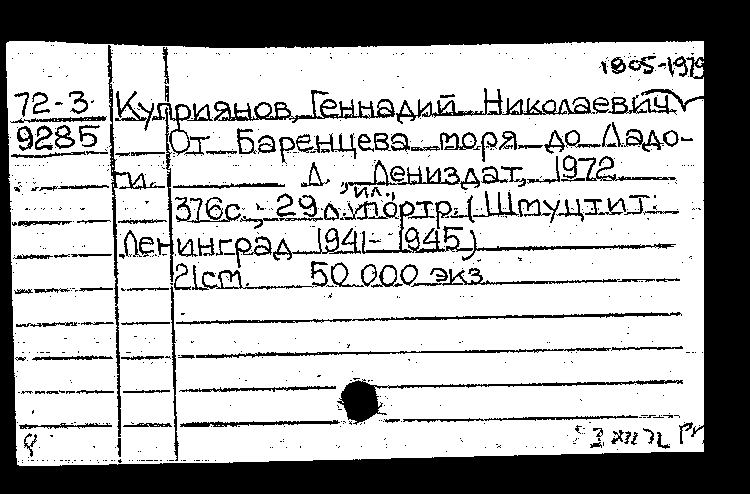 1905-1979
72-3 Куприянов, Геннадий Николаевич
9285 От Баренцева моря до Ладо-
ги. Л., Лениздат, 1972
376с.; 29л. ил., портр. (Штуцтит:
Ленинград 1941-1945)
21cm. 50 000 экз.
3 XII 72